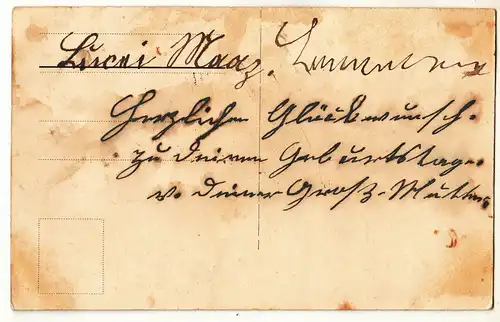 Lucei Maaz.
Herzlichen Glückwunsch.
zu deinem Geburtstage.
v. deiner Groß-Mutter